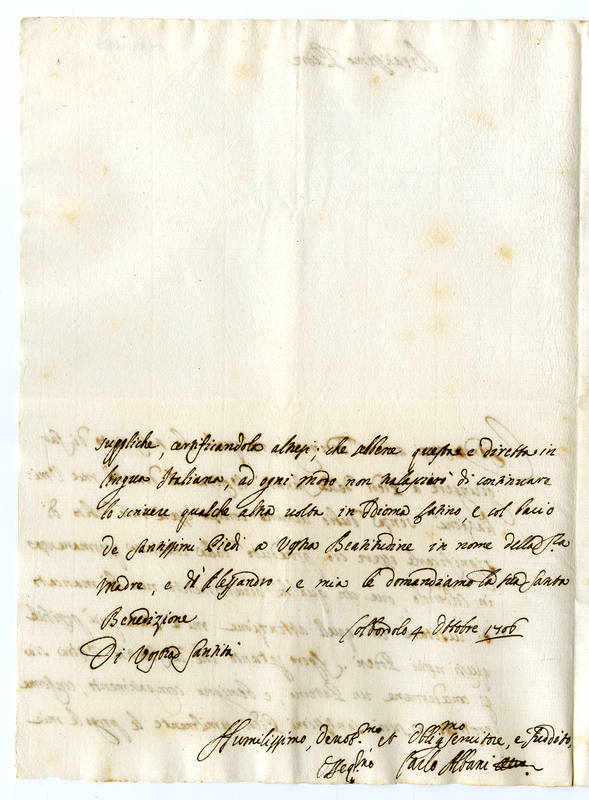 suppliche, certificandola altresì, che sebene questa e diretta in
lingua Italiana, ad ogni modo non tralasciarò di continuare
lo scrivere qualche altra volta in Idioma Latino, e col bacio
de santissimi Piedi a Vostra Beatitudine in nome della Sra.
Madre, e d'Alessandro, e mia le domandiamo la sua Santa
Benedizione
Colbordolo 4 Ottobre 1706
Di Vostra Santità
Humilissimo, devot.mo, et obblig.mo servitore, e suddito,
Osseq.mo Carlo Albani